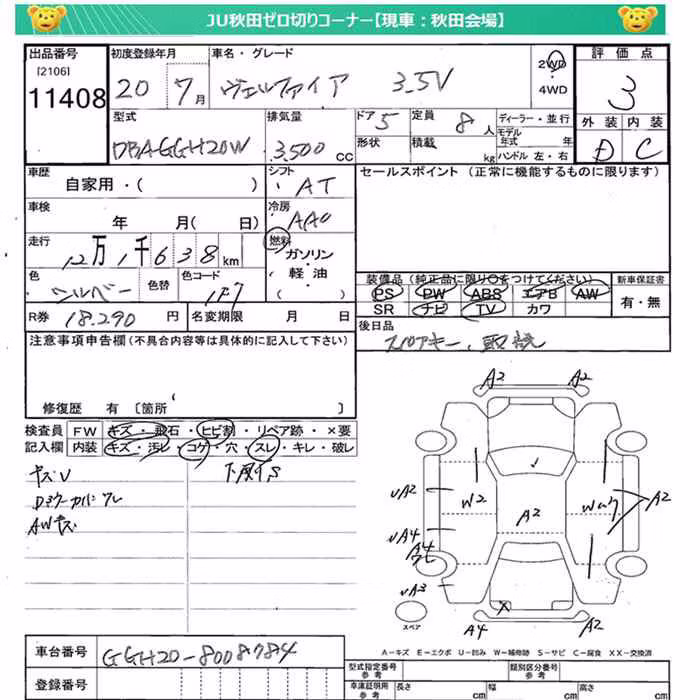 JU秋田ゼロ切りコーナー【現車：秋田会場】
出品番号 初度登録年月 車名・グレード 評価点
[2106]
11408 20 7月 ヴェルファイア 3.5V 2WD・4WD 3
型式 排気量 ドア 5 定員 8人 ディーラー・並行 外装 内装
DBAGGH20W 3,500 CC 形状 積載 kg モデル年式 年 D C
ハンドル 左・右
車歴 シフト セールスポイント（正常に機能するものに限ります）
自家用・( ) AT
車検 冷房
年 月( 日) AAC
走行 燃料
12万1千638km ガソリン・軽油 ( )
色 色替 色コード 装備品（純正品に限り○をつけてください） 新車保証書
シルバー 1F7 PS PW ABS エアB AW 有・無
SR ナビ TV カワ
R券 18,290円 名変期限 月 日 後日品
スペアキー、取説
注意事項申告欄（不具合内容等は具体的に記入して下さい）
修復歴 有 [箇所 ]
検査員 FW キズ・飛石・ヒビ割・リペア跡・×要
記入欄 内装 キズ・汚レ・コゲ・穴・スレ・キレ・破レ
キズU 下廻りS
AWキズ
A2 A2
UA2 W2 A2 A2
UA4
A4
UA3
スペア A4 A2
A－キズ E－エクボ U－凹み W－補修跡 S－サビ C－腐食 XX－交換済
車台番号 GGH20-8008784
登録番号 型式指定番号 参考 類別区分番号 参考
車庫証明用 参考 長さ cm 幅 cm 高さ cm